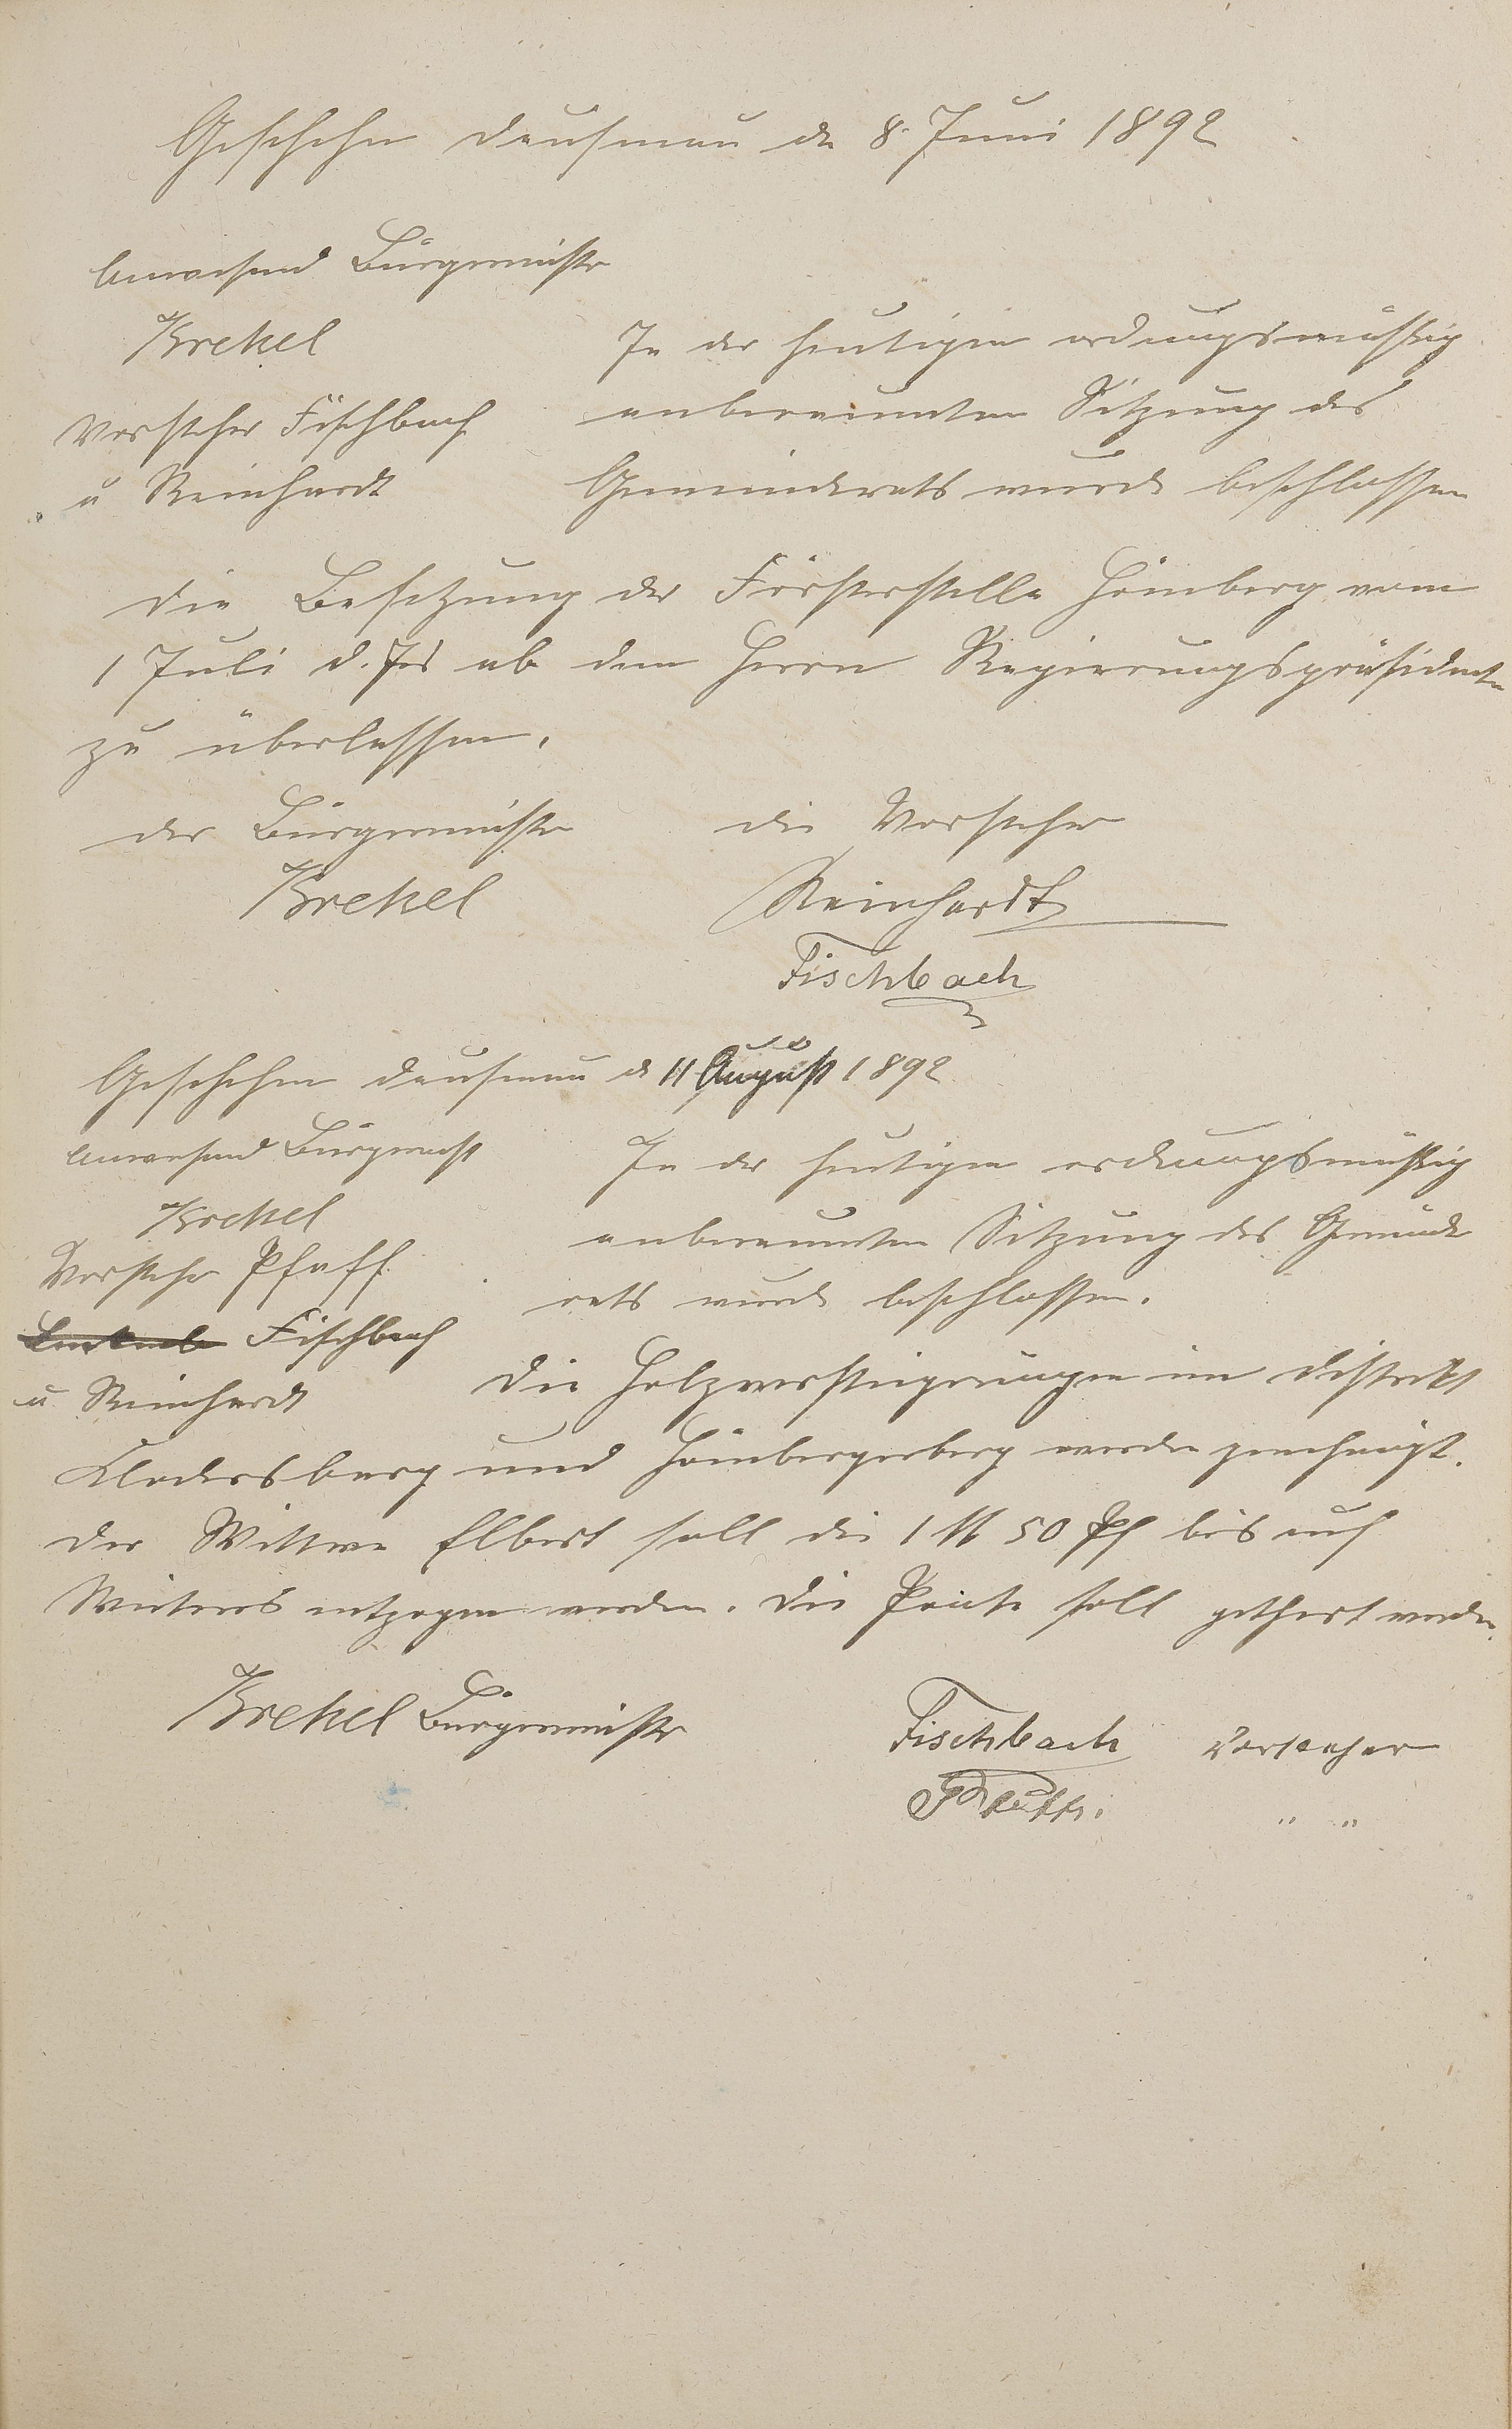 Geschehn Dausenau de 8. Juni 1892
Anwesend Bürgermeister
Krekel
Vorsteher Fischbach
u Reinhardt
In der heutigen ordnungsmäßig
anberaumten Sitzung des
Gemeinderats wurde beschlossen
die Besetzung der Försterstelle Hömberg vom
1 Juli d. Jrs ab dem Herrn Regierungspräsidenten
zu überlassen.
der Bürgermeister
Krekel
die Vorsteher
Reinhardt
Fischbach
Geschehen Dausenau d 11 August 1892
Anwesend Bürgermst
Krekel
Vorsteher Pfaff
Fischbach
u Reinhardt
In der heutigen ordnungsmäßig
anberaumten Sitzung des Gemeinde
rats wurde beschlossen.
Die Holzversteigerungen im Distrikt
und Hömbergerberg werden genehmigt.
Der Wittwe Elbert soll die 1 M 50 Pf bis auf
Weiteres entzogen werden. Die soll gethert werden.
Krekel Bürgermeister
Fischbach Vorsteher
" "